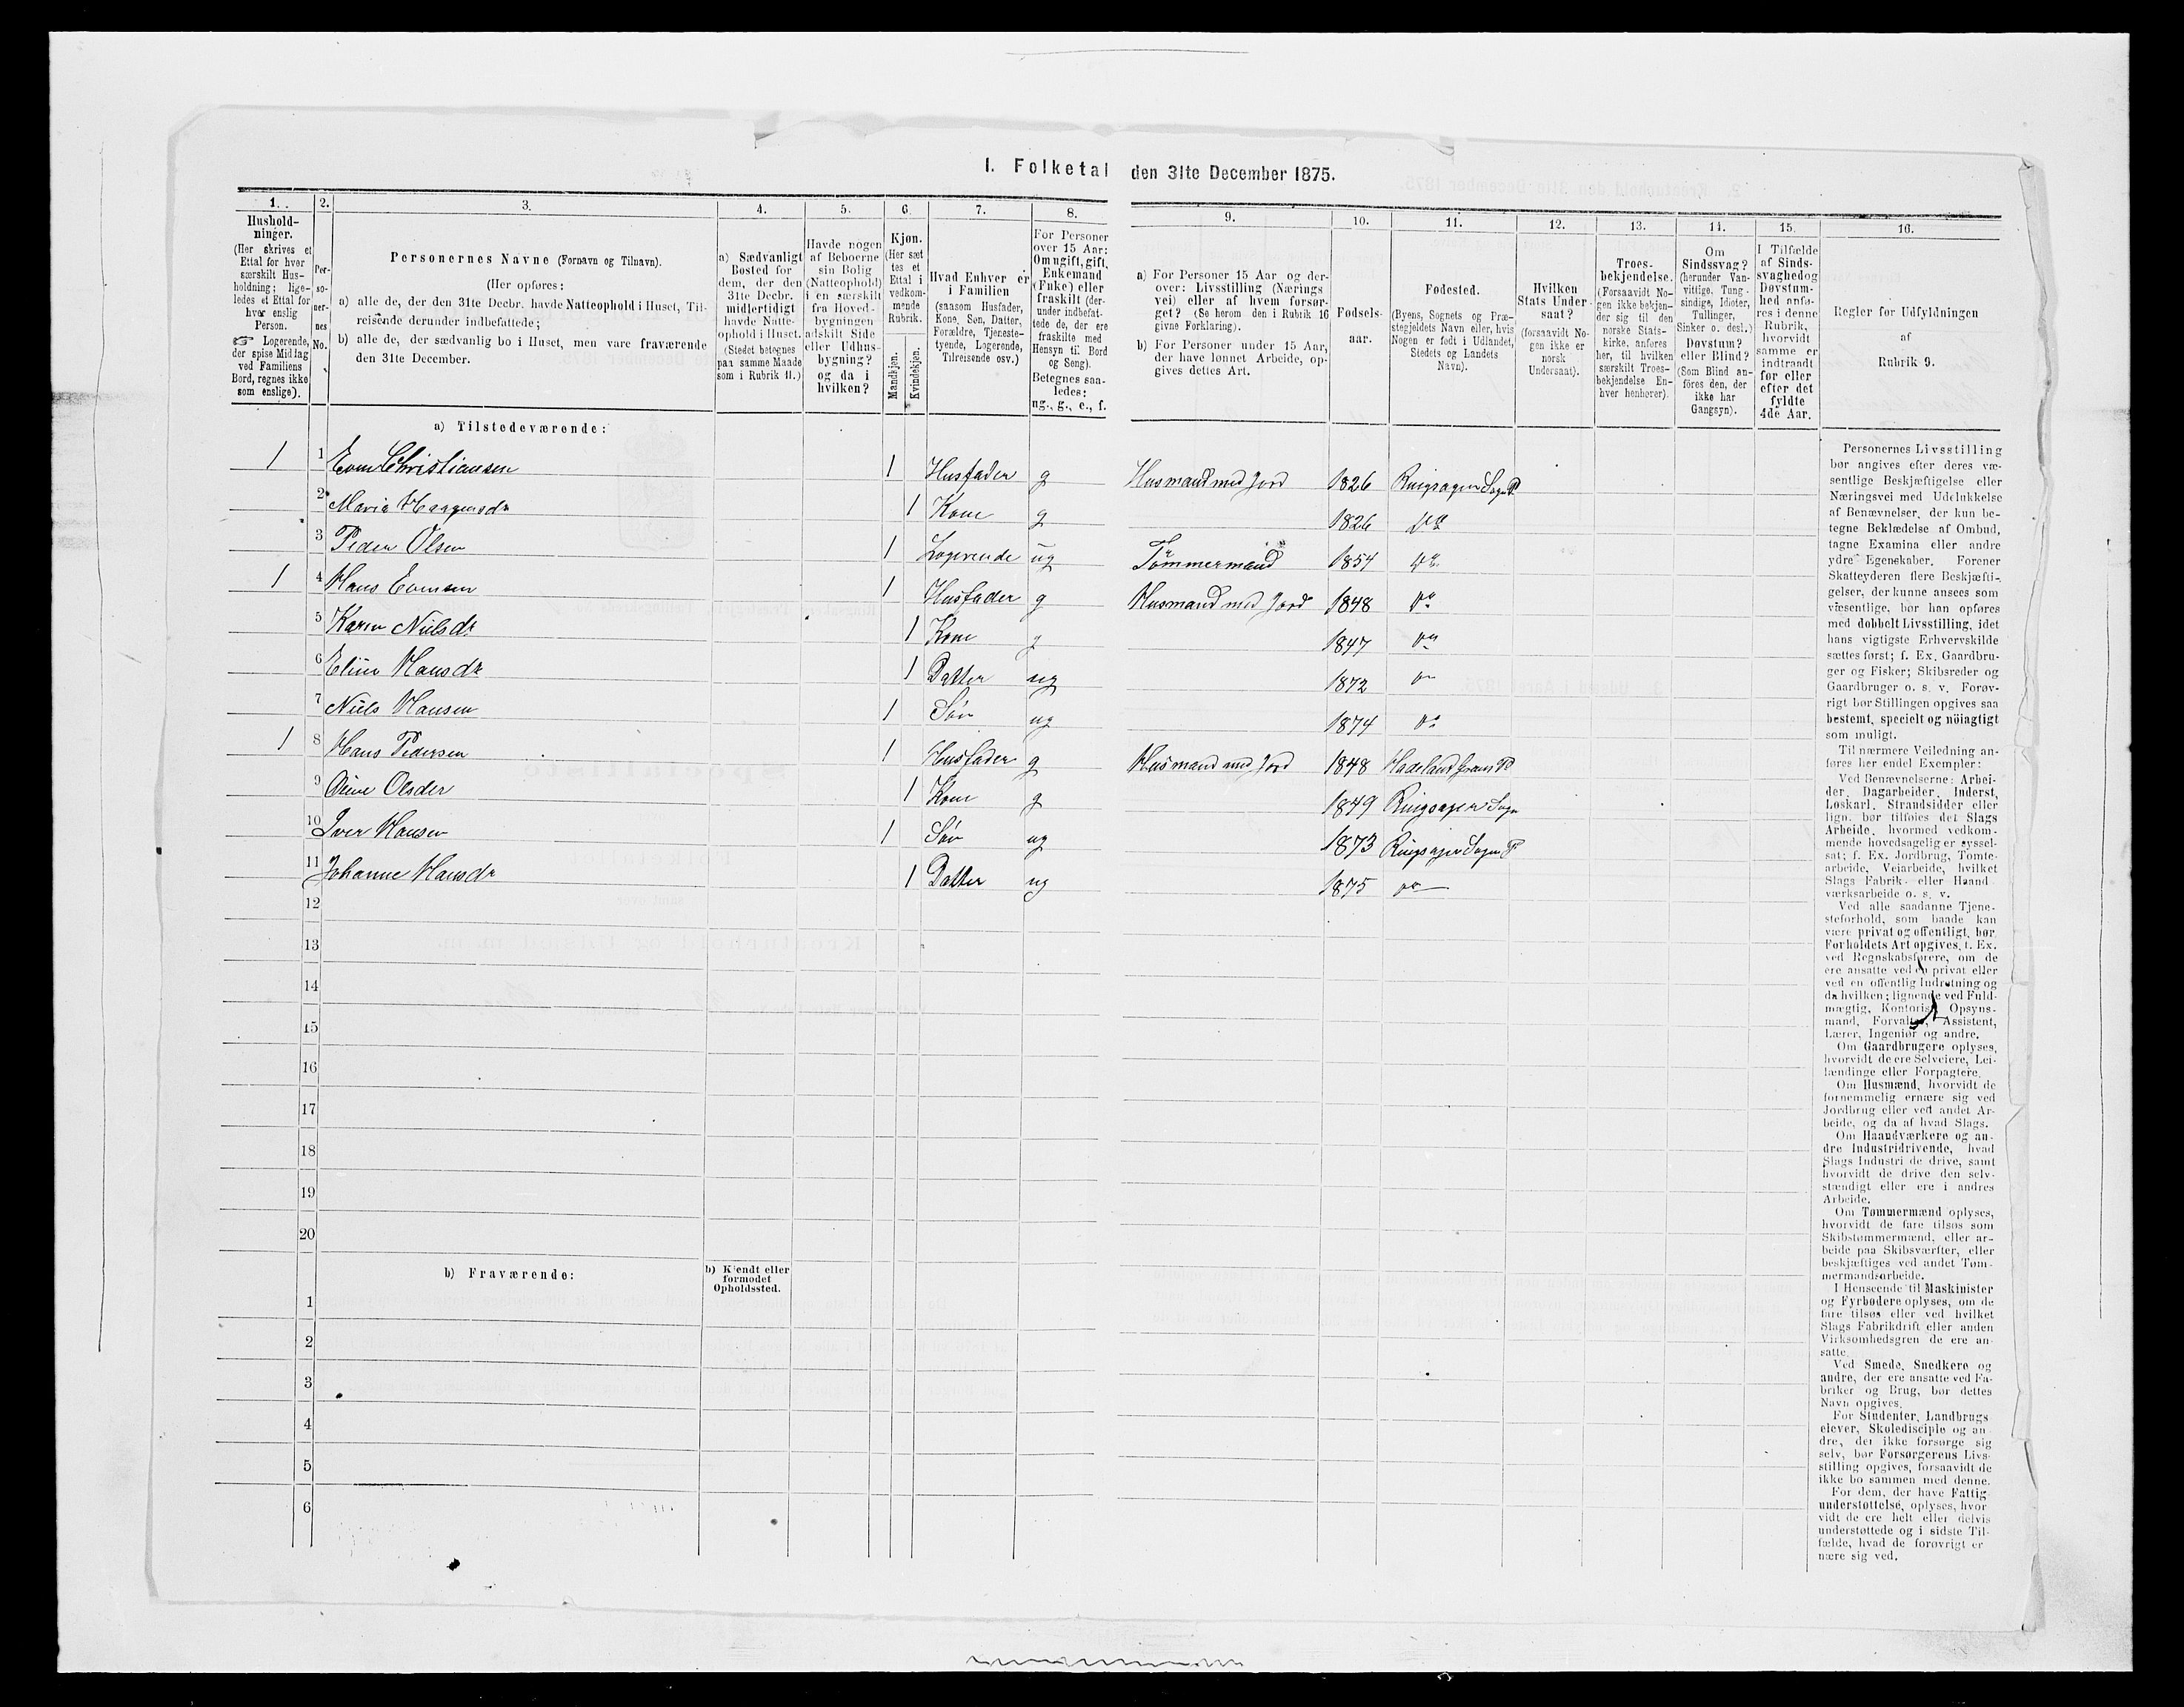 I. Folketal den 31te December 1875.
1. 2. 3. 4. 5. 6. 7. 8. 9. 10. 11. 12. 13. 14. 15. 16.
Hushold-
ninger.
(Her skrives et
Ettal for hver
særskilt Hus-
holdning; lige-
ledes et Ettal for
hver enslig
Person.
☞ Logerende,
der spise Middag
ved Familiens
Bord, regnes ikke
som enslige).
Per-
so-
ner-
nes
No.
Personernes Navne (Fornavn og Tilnavn).
(Her opføres:
a) alle de, der den 31te Decbr. havde Natteophold i Huset, Til-
reisende derunder indbefattede;
b) alle de, der sædvanlig bo i Huset, men vare fraværende
den 31te December.
a) Sædvanligt
Bosted for
dem, der den
31te Decbr.
midlertidigt
havde Natte-
ophold i Huset.
(Stedet betegnes
paa samme Maade
som i Rubrik 11.)
Havde nogen
af Beboerne
sin Bolig
(Natteophold)
i en særskilt
fra Hoved-
bygningen
adskilt Side
eller Udhus-
bygning?
og da i
hvilken?
Kjøn.
(Her sæt
tes et
Ettal i
vedkom-
mende
Rubrik.
Mandkjøn.
Kvindekjøn.
Hvad Enhver er
i Familien
(saasom Husfader,
Kone, Søn, Datter,
Forældre, Tjeneste-
tyende, Logerende,
Tilreisende osv.)
For Personer
over 15 Aar:
Om ugift, gift,
Enkemand
(Enke) eller
fraskilt (der-
under indbefat-
tede de, der ere
fraskilte med
Hensyn til Bord
og Seng).
Betegnes saa-
ledes:
ug., g., e., f.
a) For Personer 15 Aar og der-
over: Livsstilling (Nærings
vei) eller af hvem forsør-
get? (Se herom den i Rubrik 16
givne Forklaring).
b) For Personer under 15 Aar,
der have lønnet Arbeide, op-
gives dettes Art.
Fødsels-
aar.
Fødested.
(Byens, Sognets og Præ-
stegjeldets Navn eller, hvis
Nogen er født i Udlandet,
Stedets og Landets
Navn).
Hvilken
Stats Under-
saat?
(forsaavidt No-
gen ikke er
norsk
Undersaat).
Troes-
bekjendelse.
(Forsaavidt No-
gen ikke bekjen-
der sig til den
norske Stats-
kirke, anføres
her, til hvilken
særskilt Troes-
bekjendelse En-
hver henhører).
Om
Sindssvag?
(herunder Van-
vittige, Tung-
sindige, Idioter,
Tullinger,
Sinker o. desl.)
Døvstum?
eller Blind?
(Som Blind an-
føres den, der
ikke har
Gangsyn).
I Tilfælde
af Sinds-
svaghed og
Døvstum-
hed anfø-
res i denne
Rubrik,
hvorvidt
samme er
indtraadt
før eller
efter det
fyldte
4de Aar.
Regler for Udfyldningen
af
Rubrik 9.
a) Tilstedeværende:
1 1 Even Christiansen 1 Husfader g Husmand med Jord 1826 Ringsager Sogn P.
2 Maria Haagensdr 1 Kone g 1826 do
3 Peder Olsen 1 Logerende ug Tømmermand 1854 do
1 4 Hans Evensen 1 Husfader g Husmand med Jord 1848 do
5 Karen Nilsdr 1 Kone g 1847 do
6 Eline Hansdr 1 Datter ug 1872 do
7 Niels Hansen 1 Søn ug 1874 do
1 8 Hans Pedersen 1 Husfader g Husmand med Jord 1848 Hadeland Grans P
9 Olsdr 1 Kone g 1849 Ringsager Sogn
10 Iver Hansen 1 Søn ug 1873 Ringsager Sogn P
11 Johanne Hansdr 1 Datter ug 1875 do
12
13
14
15
16
17
18
19
20
b) Fraværende:
b) Kjendt eller
formodet
Opholdssted.
1
2
3
4
5
6
Personernes Livsstilling
bør angives efter deres væ-
sentlige Beskjæftigelse eller
Næringsvei med Udelukkelse
af Benævnelser, der kun be-
tegne Beklædelse af Ombud,
tagne Examina eller andre
ydre Egenskaber. Forener
Skatteyderen flere Beskjæfti-
gelser, der kunne ansees som
væsentlige, bør han opføres
med dobbelt Livsstilling, idet
hans vigtigste Erhvervskilde
sættes først; f. Ex. Gaardbru-
ger og Fisker; Skibsreder og
Gaardbruger o. s. v. Forøv-
rigt bør Stillingen opgives saa
bestemt, specielt og nöiagtigt
som muligt.
Til nærmere Veiledning an-
føres her endel Exempler:
Ved Benævnelserne: Arbei-
der, Dagarbeider, Inderst,
Løskarl, Strandsidder eller
lign. bør tilføies det Slags
Arbeide, hvormed vedkom-
mende hovedsagelig er syssel-
sat; f. Ex. Jordbrug, Tomte-
arbeide, Veiarbeide, hvilket
Slags Fabrik- eller Haand-
værksarbeide o. s. v.
Ved alle saadanne Tjene-
steforhold, som baade kan
være privat og offentligt, bør
Forholdets Art opgives, f. Ex.
ved Regnskabsførere, om de
ere ansatte ved en privat eller
ved en offentlig Indretning og
da hvilken; lignende ved Fuld-
mægtig, Kontorist, Opsyns-
mand, Forvalter, Assistent,
Lærer, Ingeniør og andre.
Om Gaardbrugere oplyses,
hvorvidt de ere Selveiere, Lei-
lændinge eller Forpagtere.
Om Husmænd, hvorvidt de
fornemmelig ernære sig ved
Jordbrug eller ved andet Ar-
beide, og da af hvad Slags.
Om Haandværkere og an-
dre Industridrivende, hvad
Slags Industri de drive, samt
hvorvidt de drive den selv-
stændigt eller ere i andres
Arbeide.
Om Tømmermænd oplyses,
hvorvidt de fare tilsøs som
Skibstømmermænd, eller ar-
beide paa Skibsværfter, eller
beskjæftiges ved andet Tøm-
mermandsarbeide.
I Henseende til Maskinister
og Fyrbødere oplyses, om de
fare tilsøs eller ved hvilket
Slags Fabrikdrift eller anden
Virksomhedsgren de ere an-
satte.
Ved Smede, Snedkere og
andre, der ere ansatte ved Fa-
briker og Brug, bør dettes
Navn opgives.
For Studenter, Landbrugs
elever, Skoledisciple og an-
dre, der ikke forsørge sig
selv, bør Forsørgerens Livs-
stilling opgives, forsaavidt de
ikke bo sammen med denne.
For dem, der have Fattig-
understøttelse, oplyses, hvor
vidt de ere helt eller delvis
understøttede og i sidste Til-
fælde, hvad de forøvrigt er
nære sig ved.